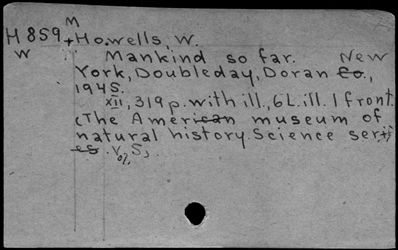 M
H 859 + Howells, W.
W Mankind so far. New
York, Doubleday, Doran Co.,
1945.
XII, 319 p. with ill., 6 L. ill. 1 front.
(The American museum of
natural history. Science seri
es.